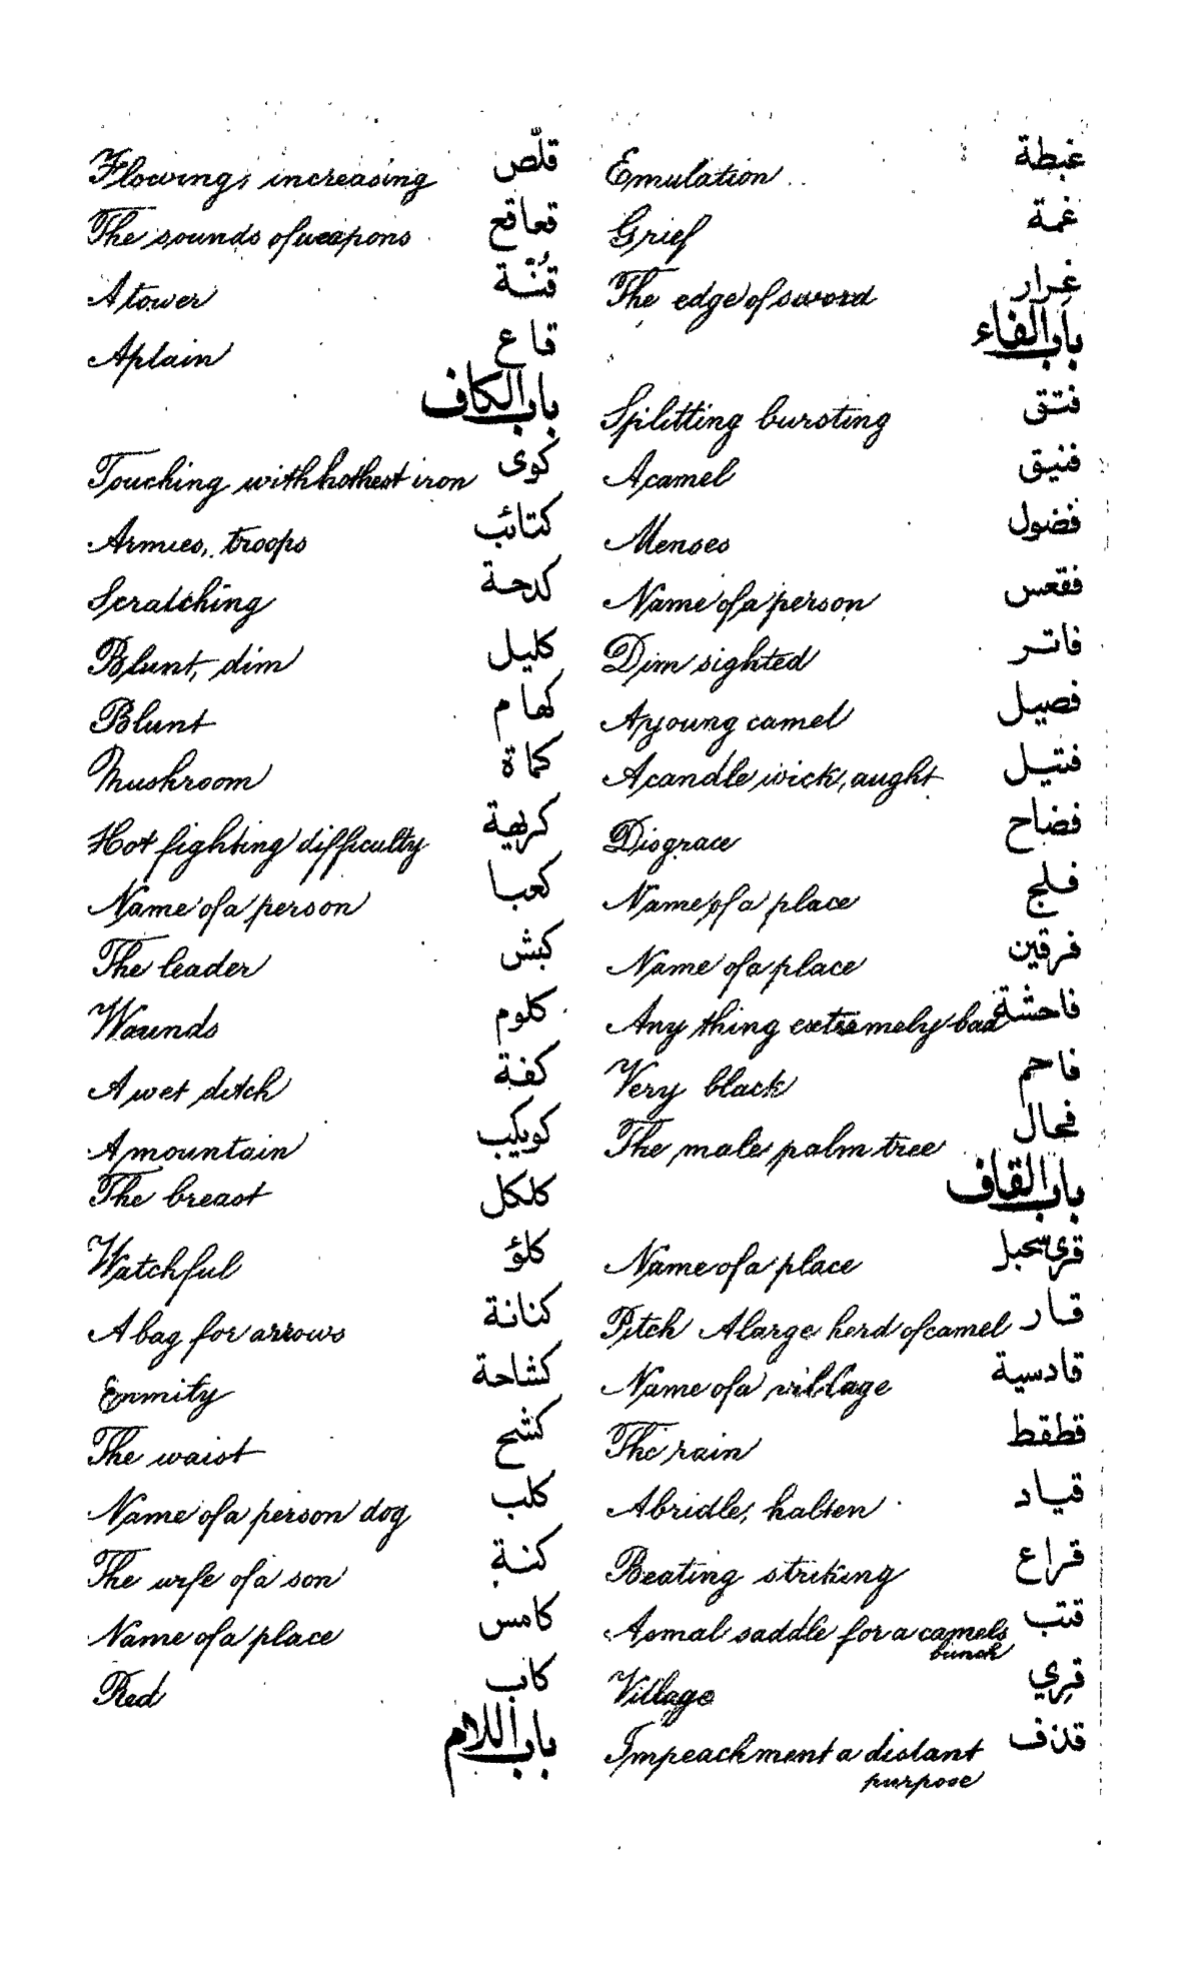 غبطة Emulation
غمة Grief
غرار The edge of sword
باب الفاء
فتق Splitting bursting
فنيق A camel
فضول Menses
فقعس Name of a person
فاتر Dim sighted
فصيل A young camel
فتيل A candle wick, aught
فضاح Disgrace
فلج Name of a place
فرقين Name of a place
فاحشة Any thing extremely bad
فاحم Very black
فحال The male palm tree
باب القاف
قرى سحبل Name of a place
قار Pitch A large herd of camel
قادسية Name of a village
قطقط The rain
قياد A bridle, halten
قراع Beating striking
قتب A smal saddle for a camels
bunch
قري Village
قذف Impeachment a distant
purpose
قلّص Flowing, increasing
قعاقع The sounds of weapons
قُنّة A tower
قاع A plain
باب الكاف
كوى Touching with hothest iron
كتائب Armies, troops
كدحة Scratching
كليل Blunt, dim
كهام Blunt
كماة Mushroom
كريهة Hot fighting difficulty
كعبا Name of a person
كبش The leader
كلوم Wounds
كفة A wet ditch
كويكب A mountain
كلكل The breast
كلؤ Watchful
كنانة A bag for arrows
كشاحة Enmity
كشح The waist
كلب Name of a person dog
كنة The wife of a son
كامس Name of a place
كاب Red
باب اللام